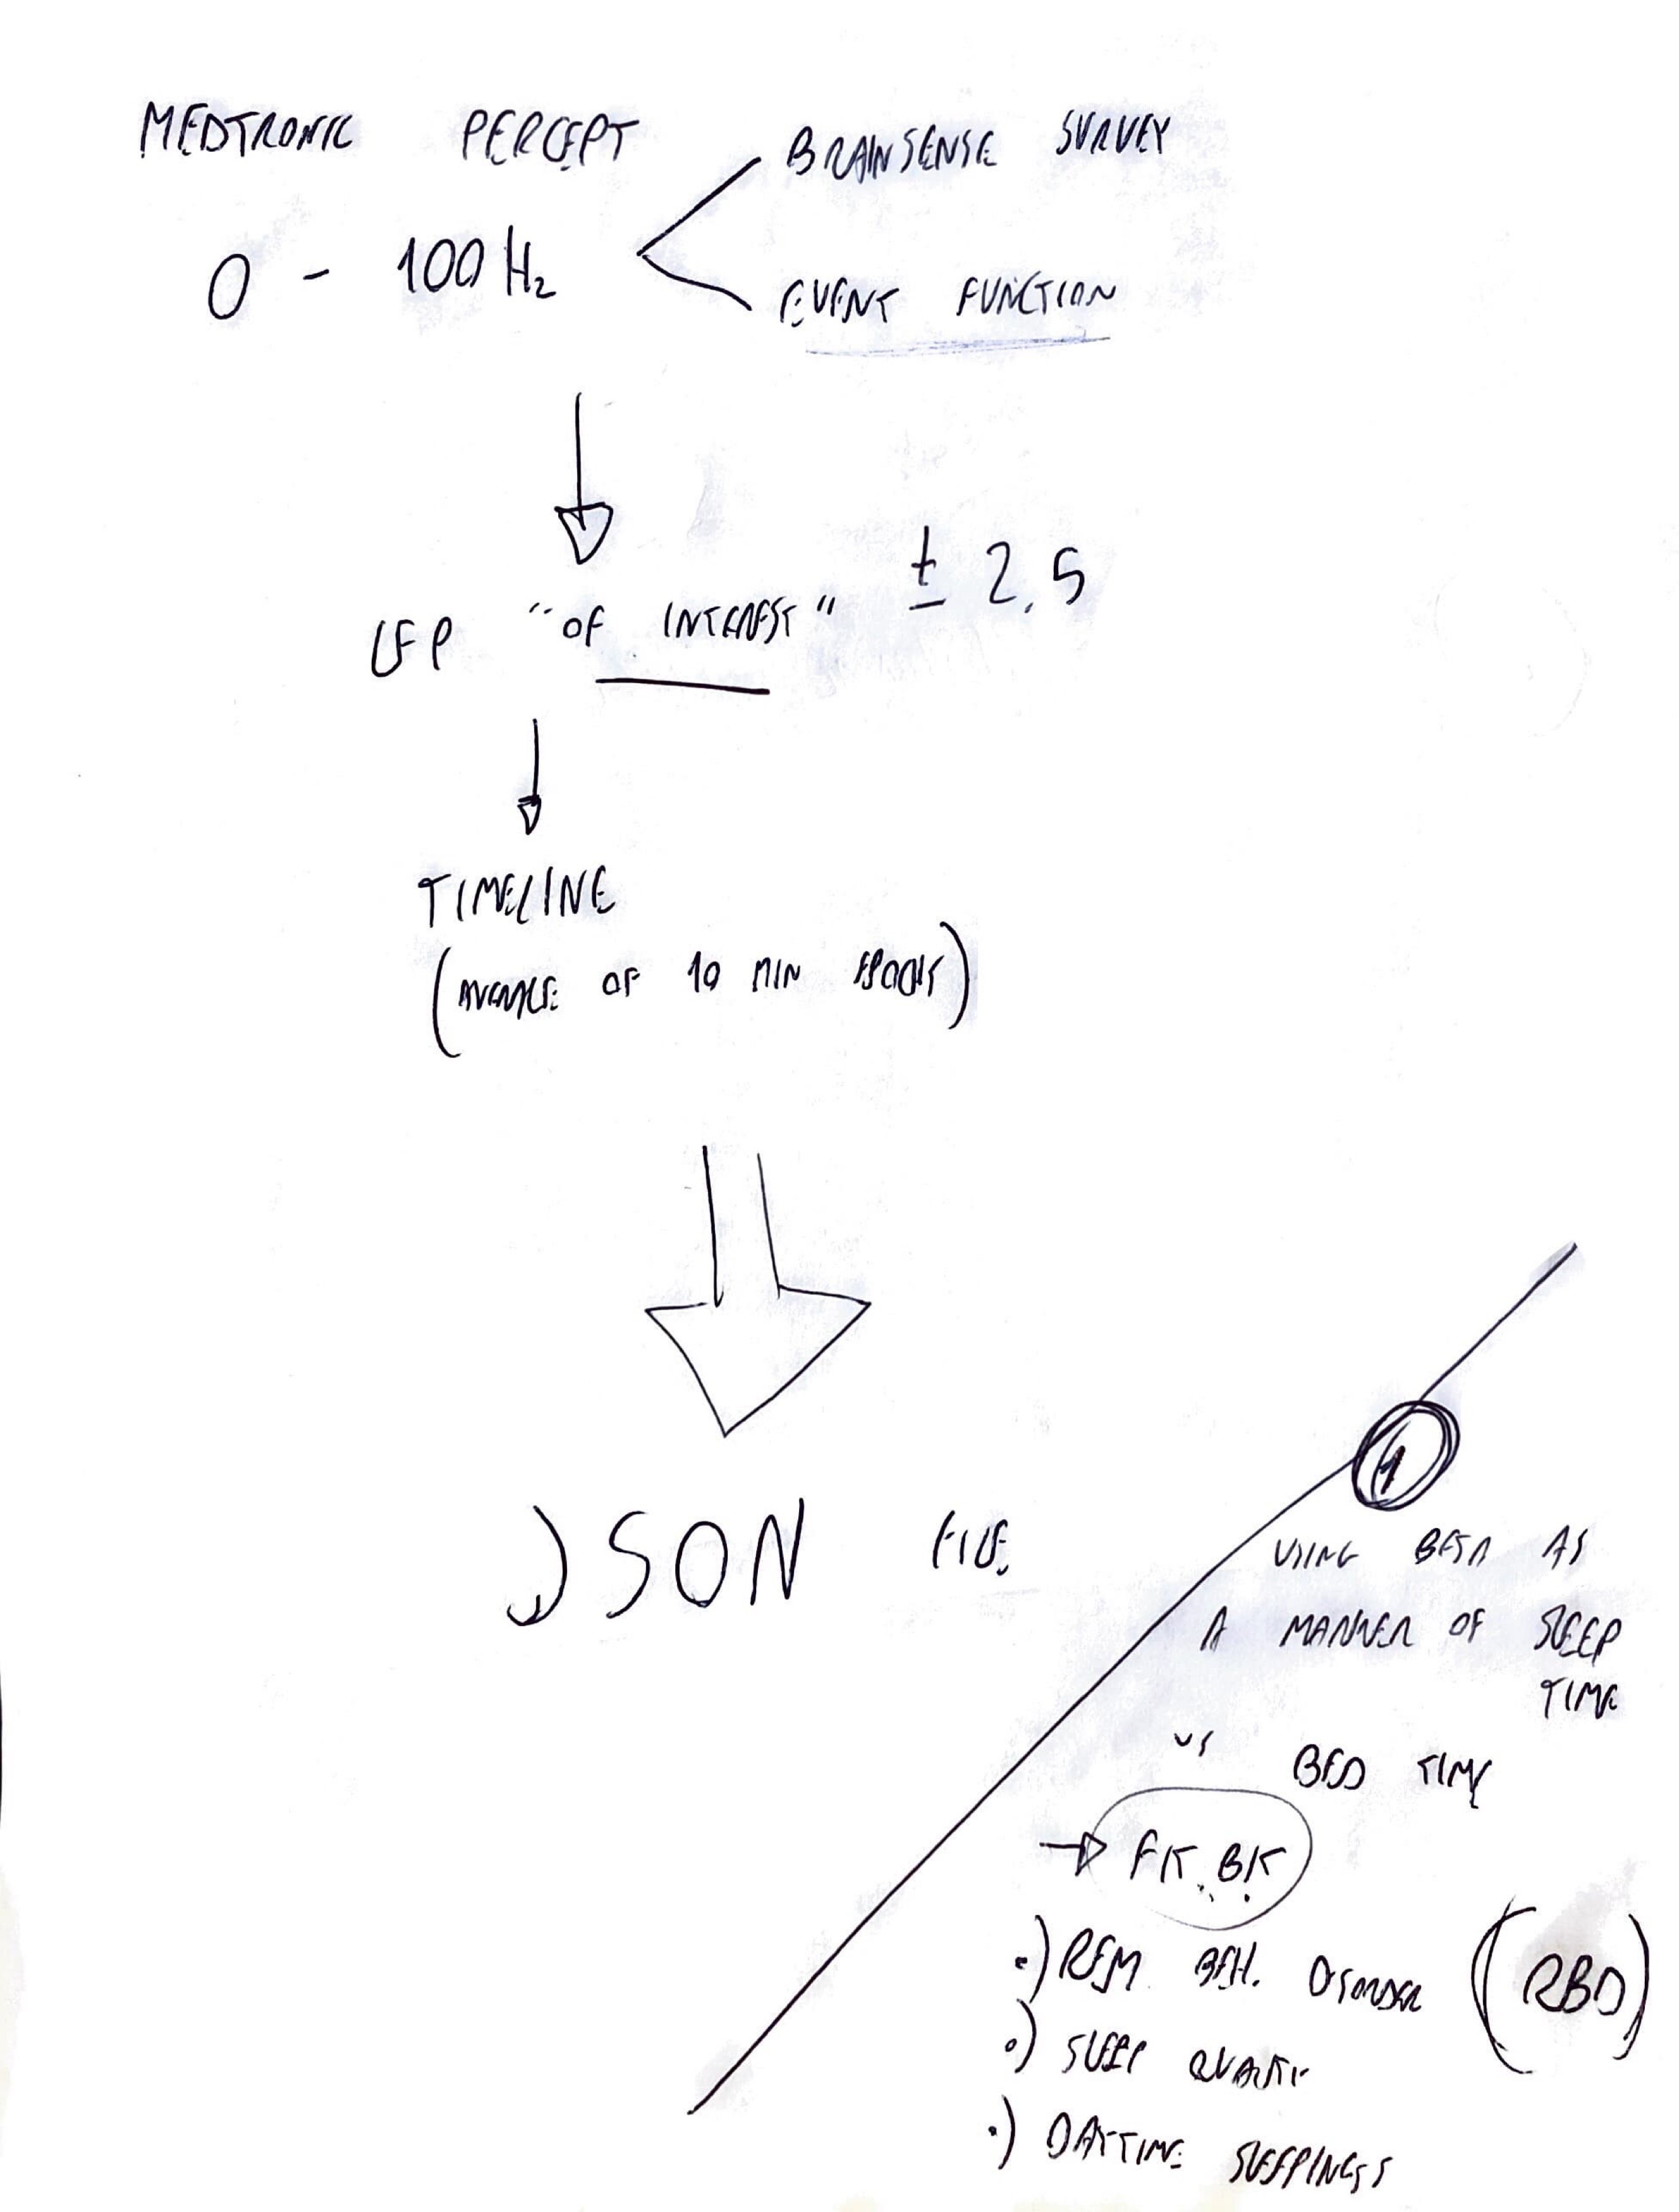 MEDTRONIC PERCEPT
BRAINSENSE SURVEY
0 - 100 Hz
EVENT FUNCTION
LFP "OF INTEREST" ± 2.5
TIMELINE
(AVERAGE OF 10 MIN EPOCHS)
JSON FILE
1
USING BETA AS
A MARKER OF SLEEP
TIME
VS BED TIME
FK BK
REM BEH. DISORDER (RBD)
SLEEP QUALITY
DAYTIME SLEEPINESS